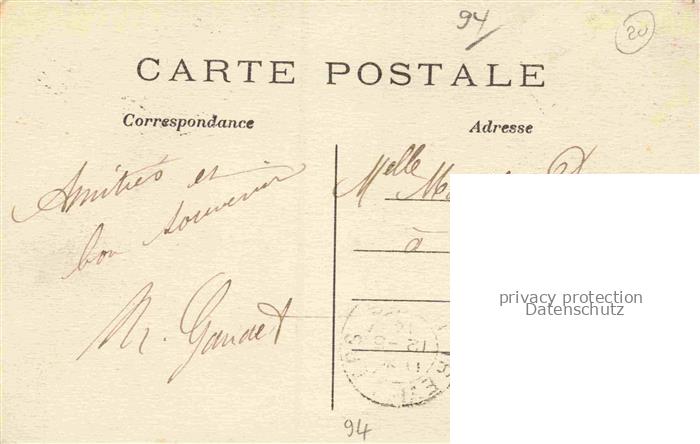 94
20
CARTE POSTALE
Correspondance
Adresse
Amitiés et
bon souvenir
Melle
à
privacy protection
Datenschutz
94